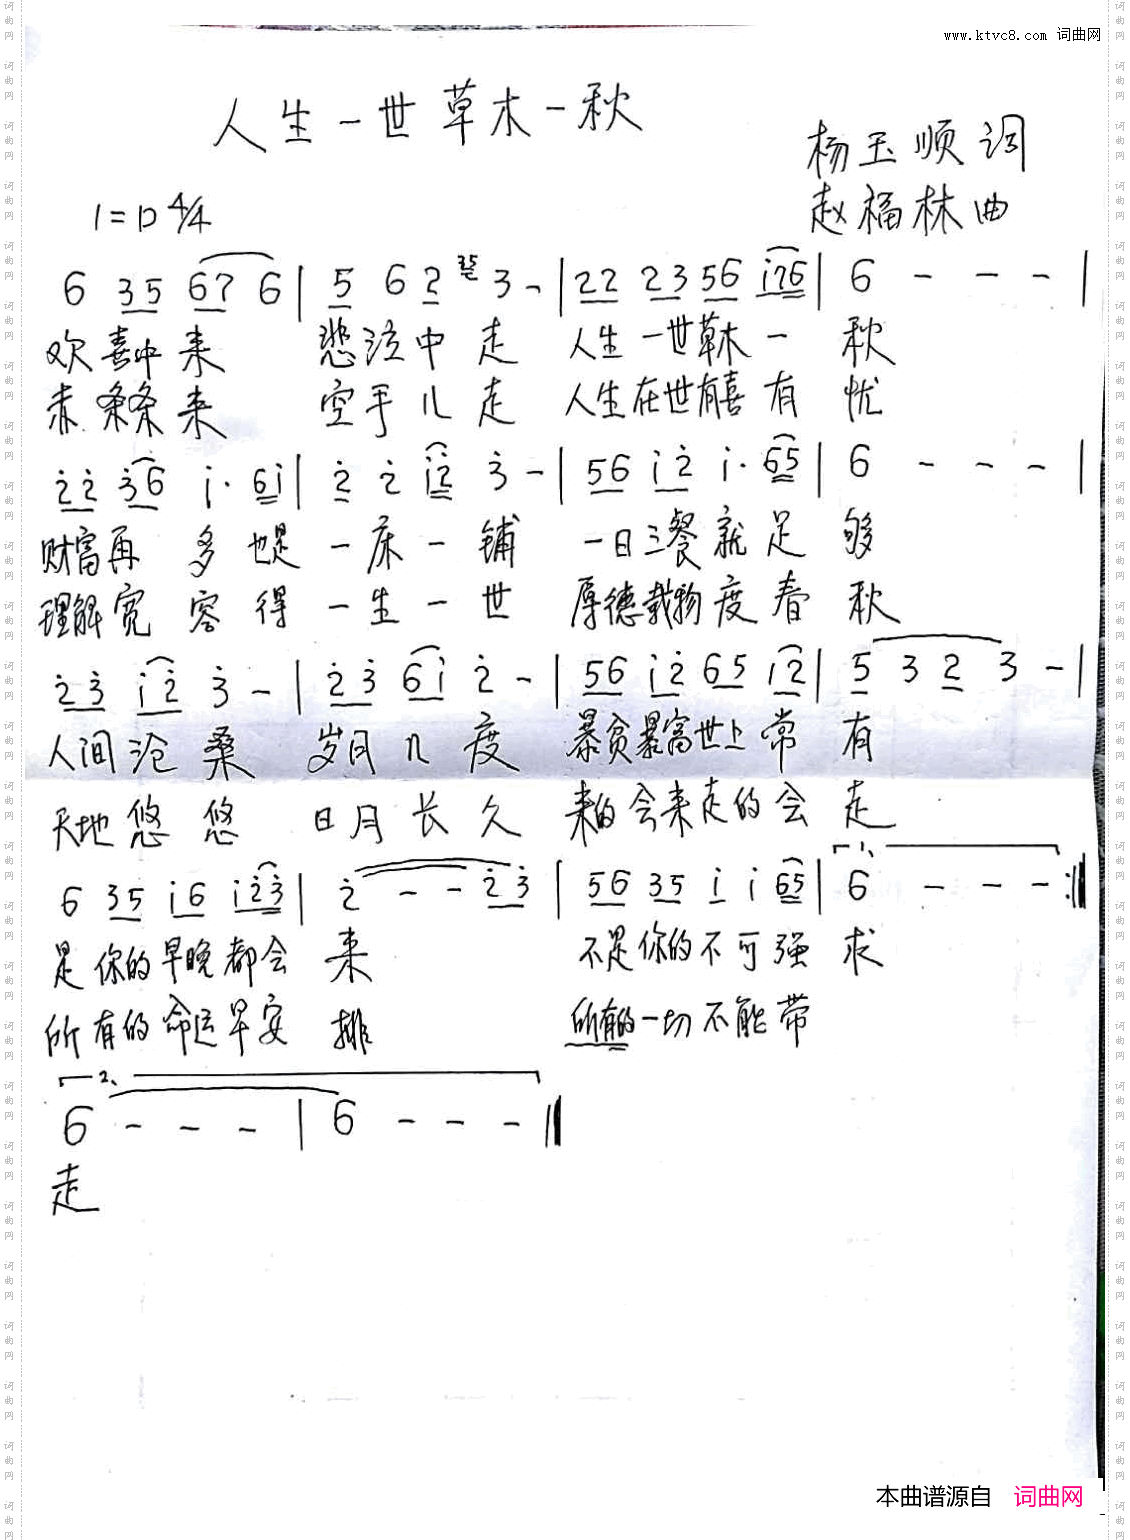 www.ktvc8.com 词曲网
人生一世草木一秋
杨玉顺词
赵福林曲
1=D 4/4
6 35 67 6 | 5 6 2 35 3 - | 22 23 56 i76 | 6 - - - |
欢喜中来 悲泣中走 人生一世草木一 秋
赤条条来 空手儿走 人生在世有喜有 忧
22 36 i· 6i | 2 2 i2 3 - | 56 i2 i· 65 | 6 - - - |
财富再多也是一床一铺 一日三餐就足够
理解宽容得一生一世 厚德载物度春秋
23 i2 3 - | 23 6i 2 - | 56 i2 65 i2 | 5 3 2 3 - |
人间沧桑 岁月几度 暴贫暴富世上常有
天地悠悠 日月长久 来的会来走的会走
6 35 i6 i23 | 2 - - 23 | 56 35 i i 65 | 1. 6 - - - :||
是你的早晚都会来 不是你的不可强求
所有的命运早安排 所有的一切不能带
2.
6 - - - | 6 - - - ||
走
本曲谱源自 词曲网